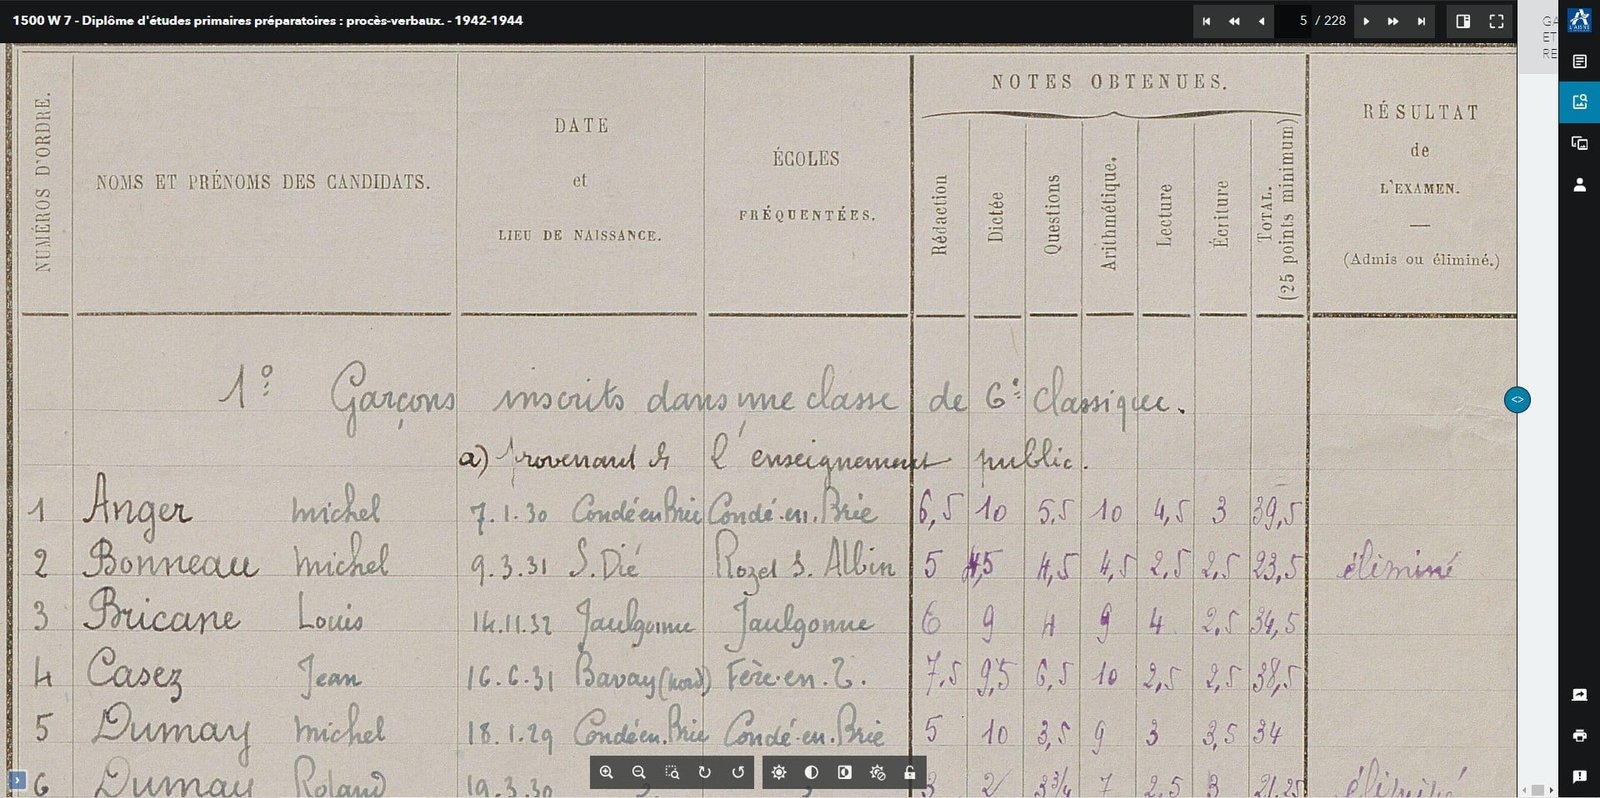 1500 W 7 - Diplôme d'études primaires préparatoires : procès-verbaux. - 1942-1944
5 / 228
GA
ET
RE
NUMÉROS D'ORDRE.
NOMS ET PRÉNOMS DES CANDIDATS.
DATE
et
LIEU DE NAISSANCE.
ÉCOLES
FRÉQUENTÉES.
NOTES OBTENUES.
Rédaction
Dictée
Questions
Arithmétique.
Lecture
Écriture
TOTAL.
(25 points minimum)
RÉSULTAT
de
L'EXAMEN.
(Admis ou éliminé.)
1º Garçons inscrits dans une classe de 6e classique.
a) provenant de l'enseignement public.
1 Anger michel 7.1.30 Condé en Brie Condé.en.Brie 6,5 10 5,5 10 4,5 3 39,5
2 Bonneau michel 9.3.31 S. Dié Rozet S. Albin 5 4,5 4,5 4,5 2,5 2,5 23,5 éliminé
3 Bricane Louis 14.11.32 Jaulgonne Jaulgonne 6 9 4 9 4 2,5 34,5
4 Casez Jean 16.6.31 Bavay (nord) Fère.en.T. 7,5 9,5 6,5 10 2,5 2,5 38,5
5 Dumay michel 18.1.29 Condé en.Brie Condé.en.Brie 5 10 3,5 9 3 3,5 34
6 Dumay Roland 19.3.30 3 2 3 3/4 7 2,5 3 21,25 éliminé